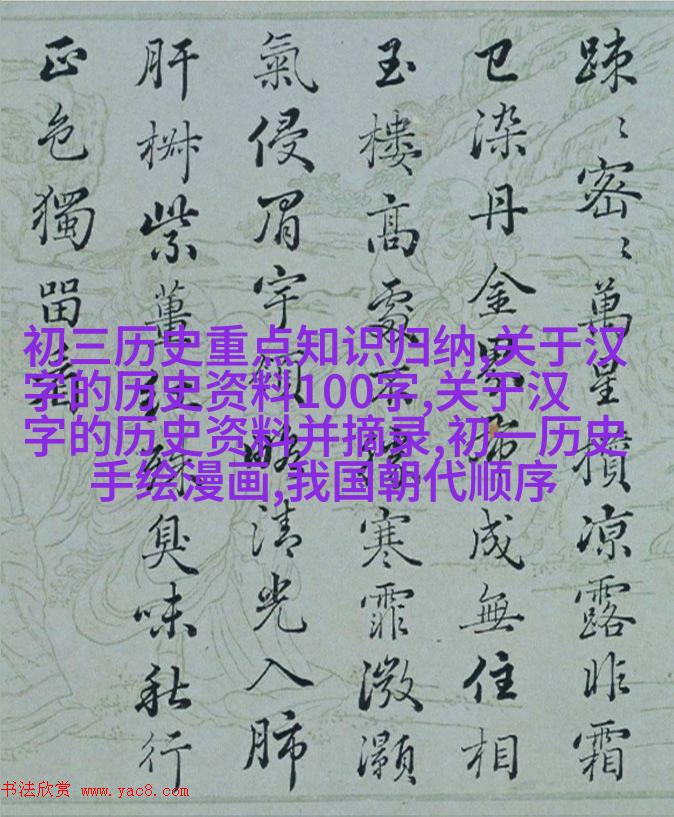 踈〻密〻萬星攢凉露昨霜
已染丹金界成無住相
玉樓高處不寒霏溦灝
氣侵眉宇領略清光入肺
肝紫薑臭味秋行
正色獨留
初三历史重点知识归纳,关于汉
字的历史资料100字,关于汉
字的历史资料并摘录,初一历史
手绘漫画,我国朝代顺序
书法欣赏 www.yac8.com